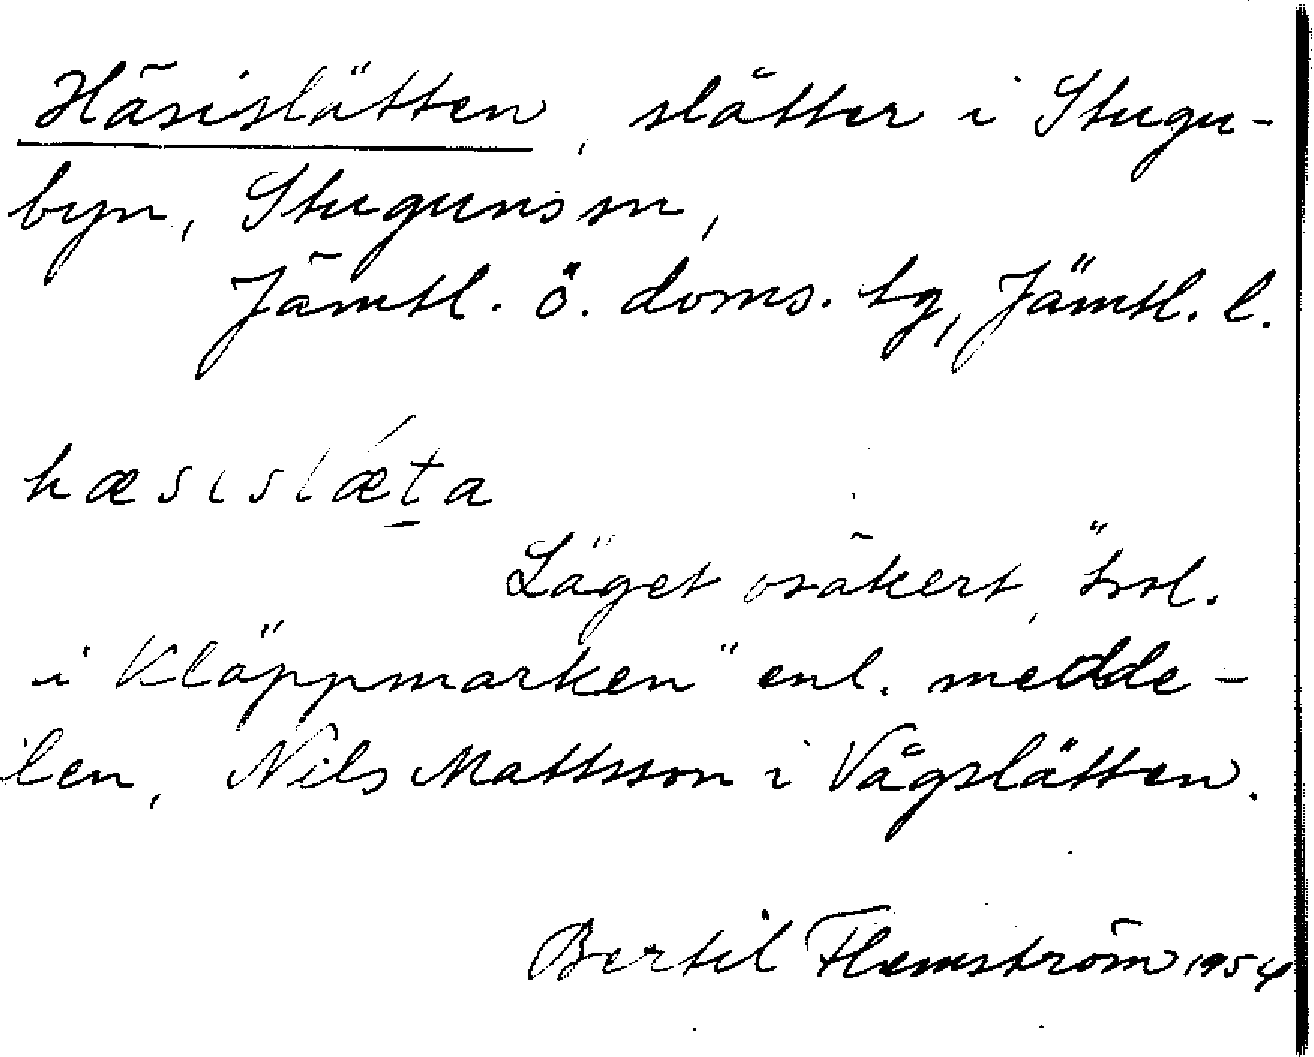 Häsislätten, slåtter i Stugu-
byn, Stuguns sn,
Jämtl. ö. doms. tg, Jämtl. l.
hæsislǽt̠a
Läget osäkert, "trol.
i Kläppmarken" enl. medde-
ilen, Nils Mattsson i Vågslätten.
Bertil Flemström 1954